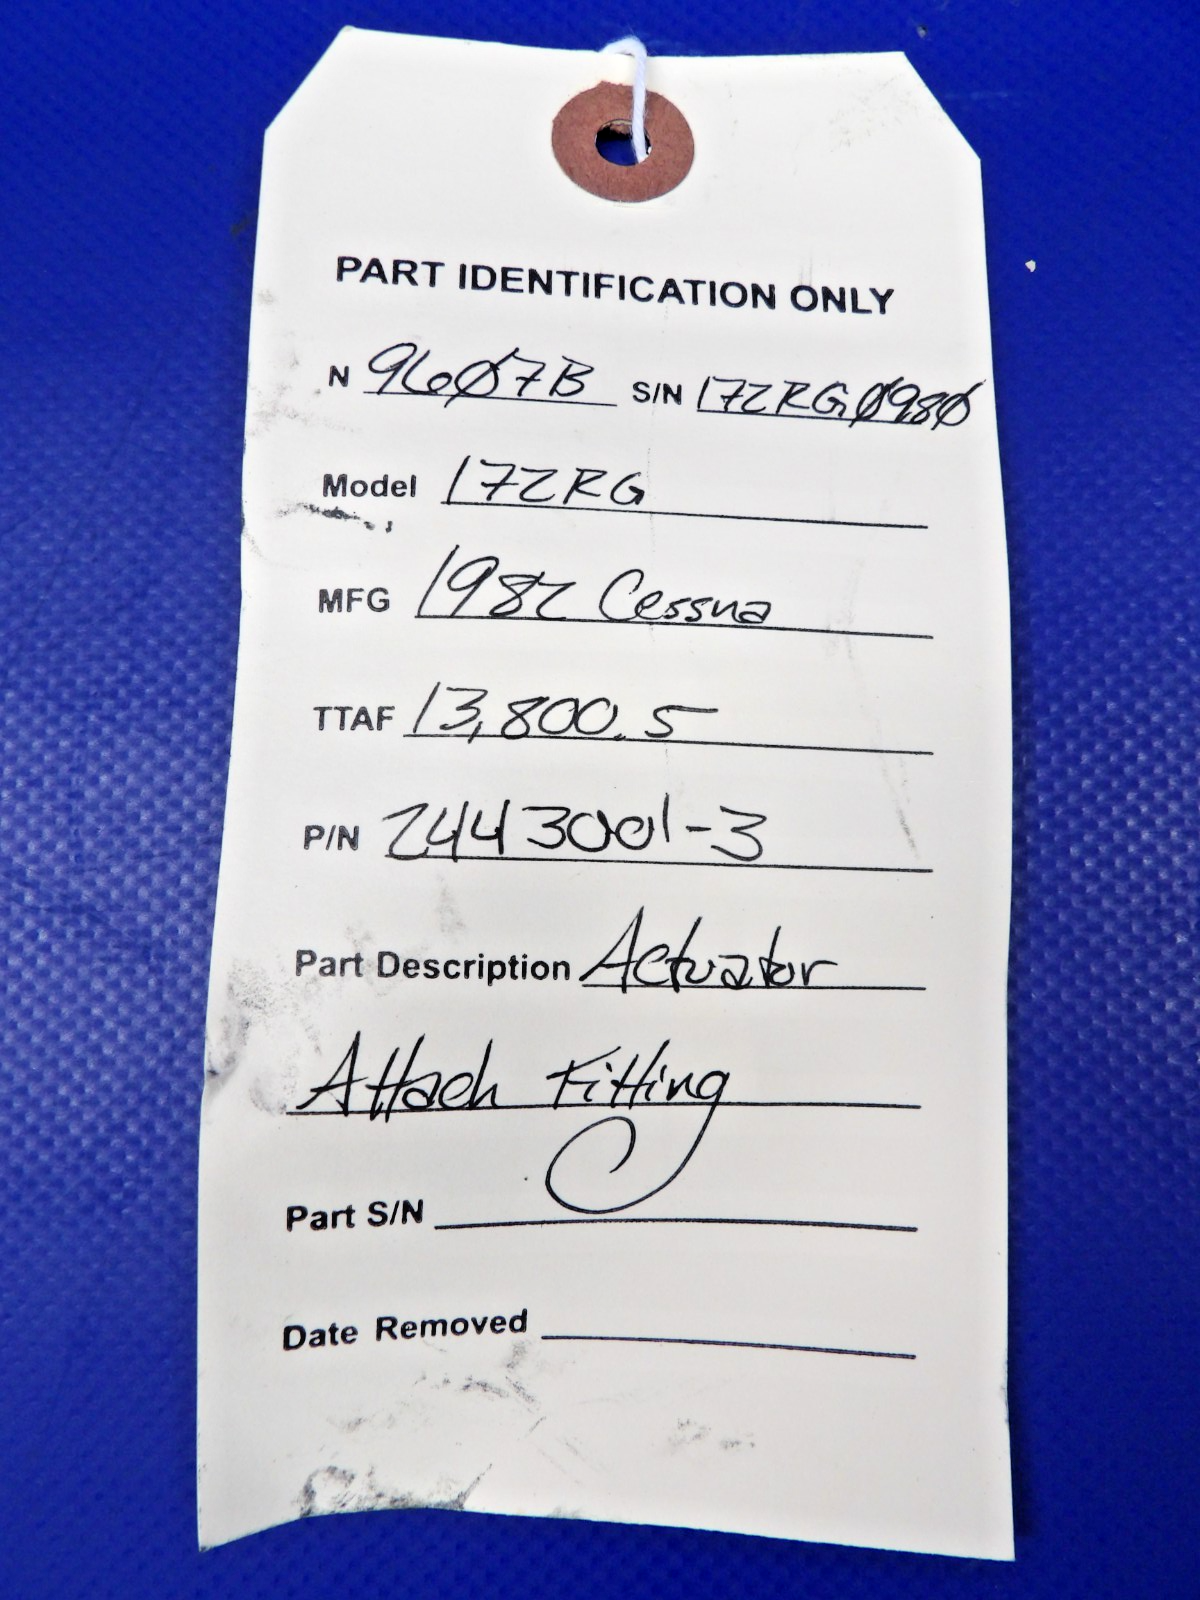 PART IDENTIFICATION ONLY
N 9607B S/N 172RG0980
Model 172RG
MFG 1982 Cessna
TTAF 13,800.5
P/N 2443001-3
Part Description Actuator
Attach Fitting
Part S/N
Date Removed